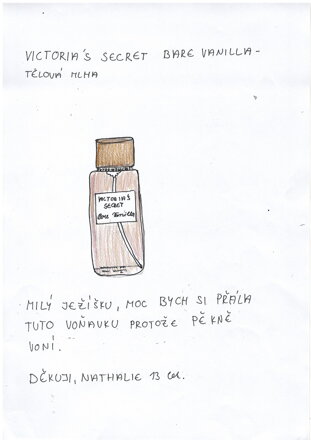 VICTORIA'S SECRET BARE VANILLA -
TĚLOVÁ MLHA
VICTORIA'S
SECRET
Bare Vanilla
MILÝ JEŽÍŠKU, MOC BYCH SI PŘÁLA
TUTO VOŇAVKU PROTOŽE PĚKNĚ
VONÍ.
DĚKUJI, NATHALIE 13 let.